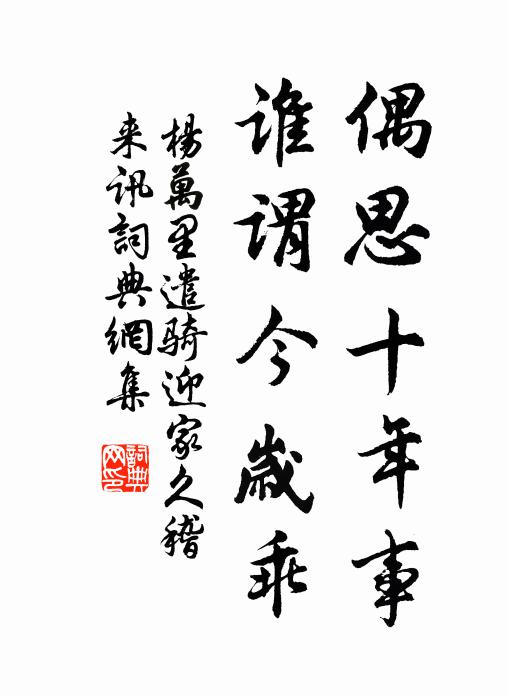 偶思十年事
谁谓今歲乖
楊萬里遣骑迎家久稽
来讯詞典網集
詞典网印